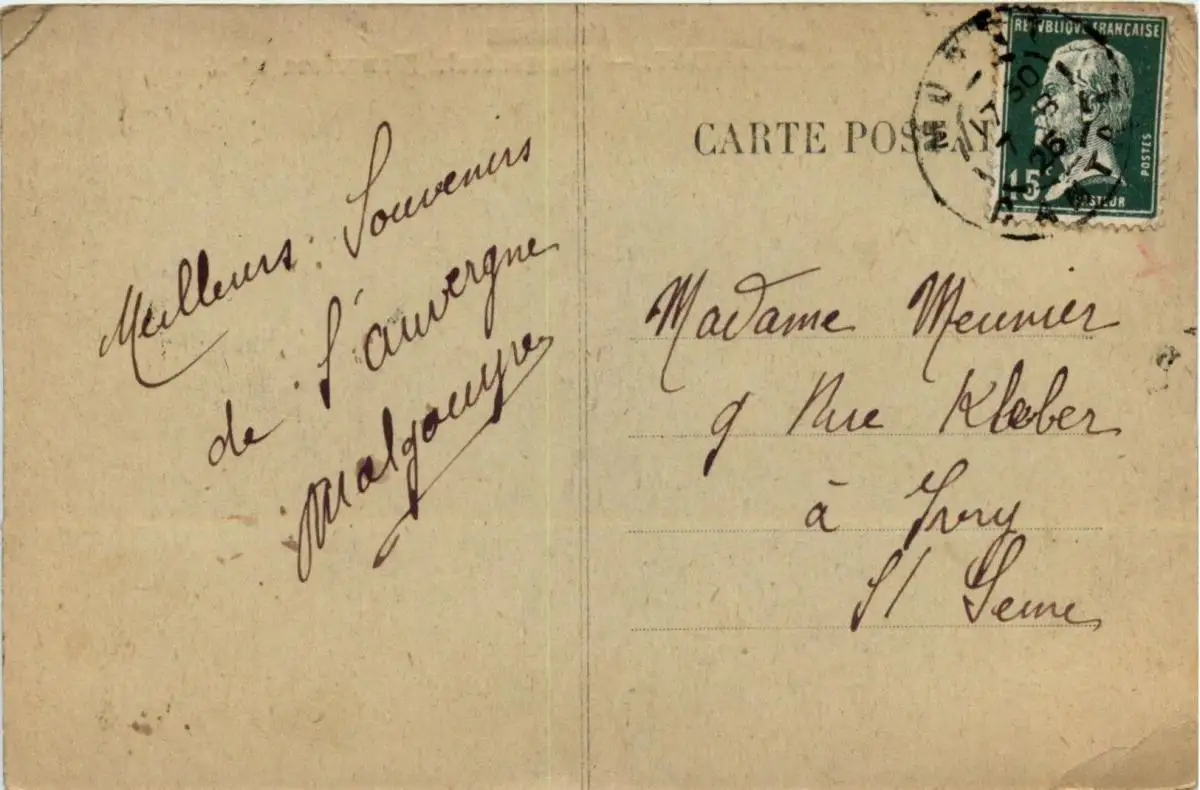 CARTE POSTALE
REPVBLIQVE FRANÇAISE
POSTES
15
PASTEUR
MURAT
CANTAL
Meilleurs Souvenirs
de l'auvergne
Malgouyre
Madame Meunier
9 Rue Kleber
à Ivry
S/ Seine